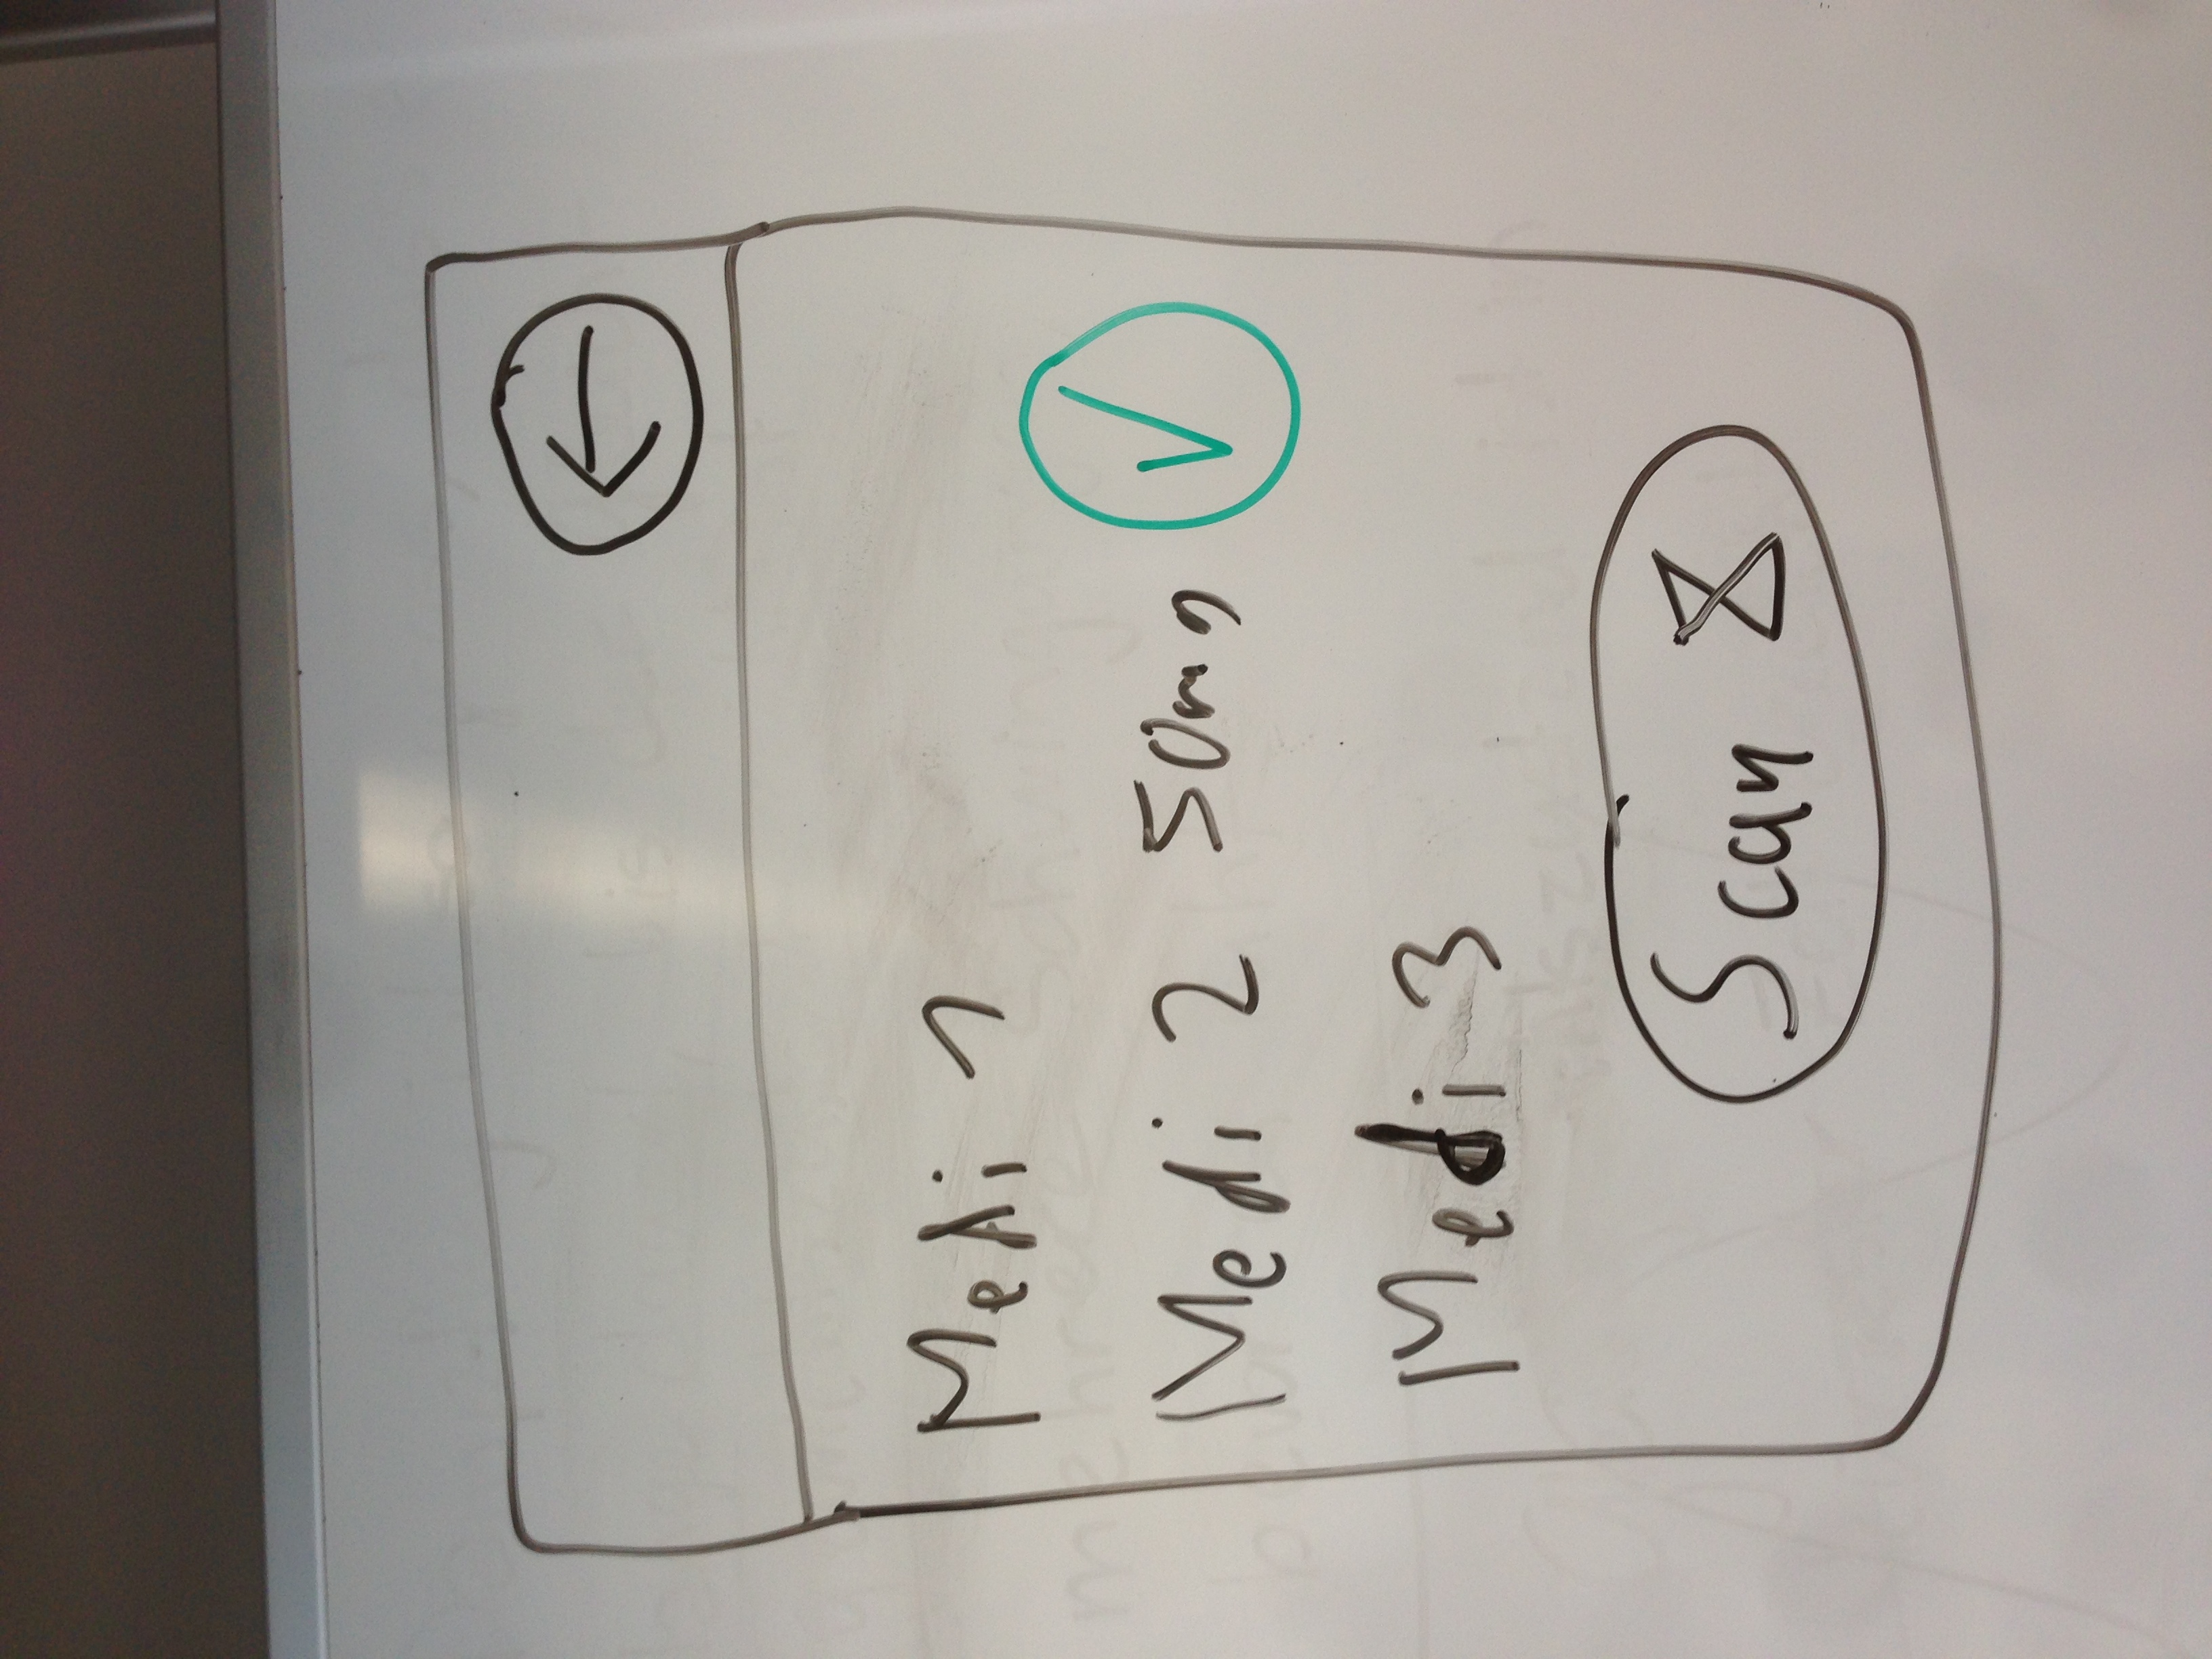 Medi 1
Medi 2 50mg
Medi 3
Scan